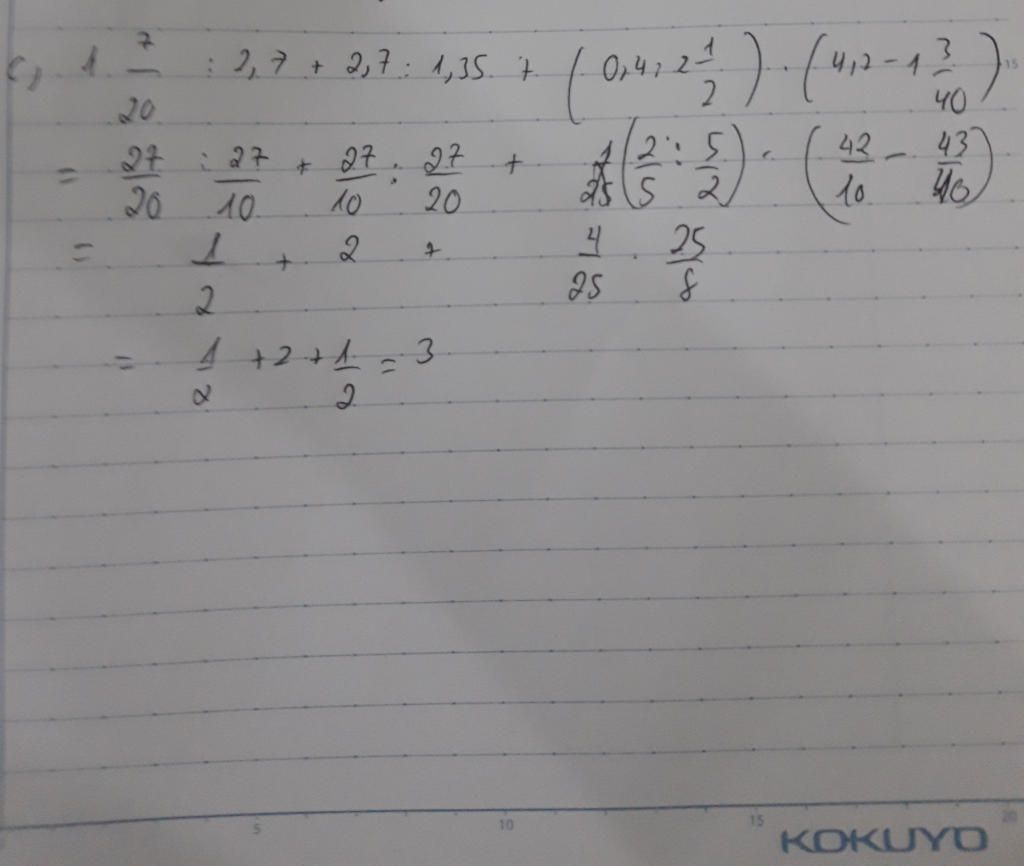 c, 1 7/20 : 2,7 + 2,7 : 1,35 + (0,4 : 2 1/2) . (4,2 - 1 3/40)
= 27/20 : 27/10 + 27/10 : 27/20 + (2/5 : 5/2) . (42/10 - 43/40)
= 1/2 + 2 + 4/25 . 25/8
= 1/2 + 2 + 1/2 = 3
5 10 15 20
KOKUYO